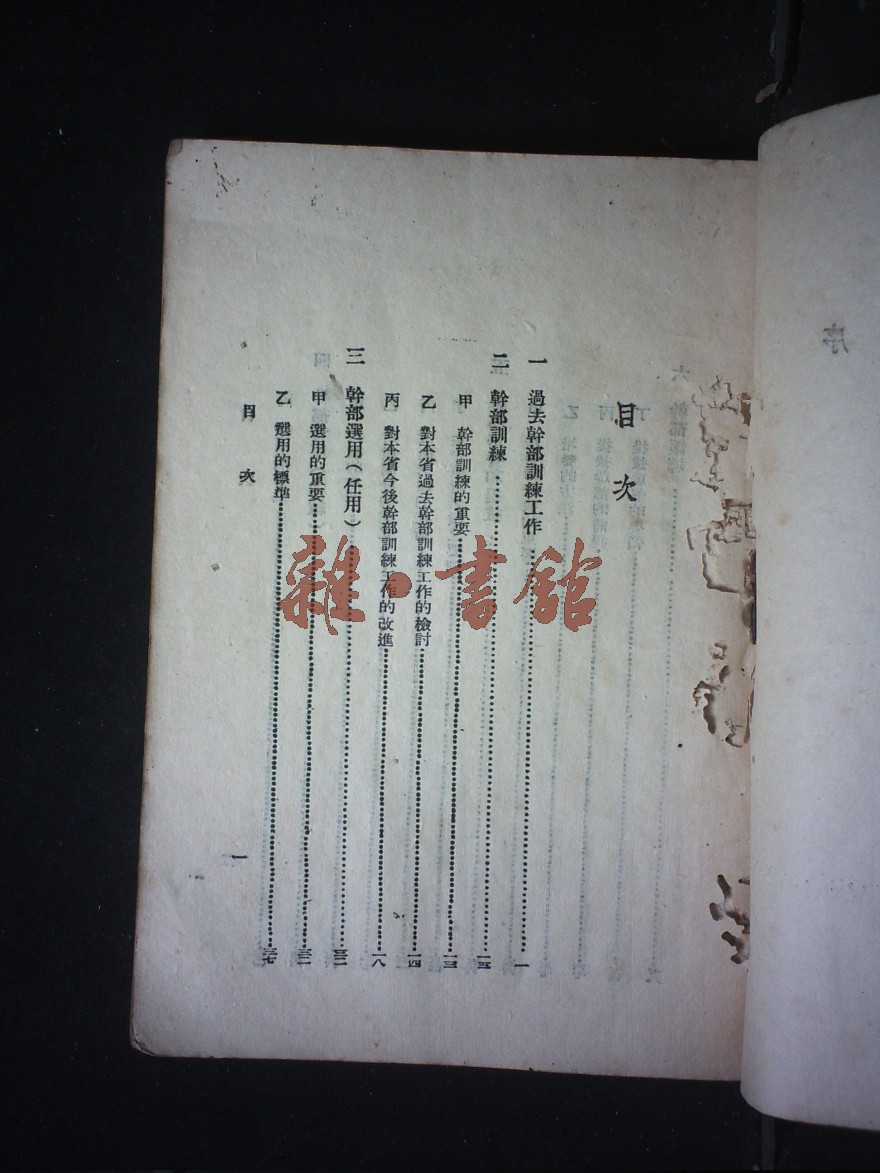 目次
一 過去幹部訓練工作……一
二 幹部訓練……
甲 幹部訓練的重要……一三
乙 對本省過去幹部訓練工作的檢討……一四
丙 對本省今後幹部訓練工作的改進……一八
三 幹部選用（任用）……
甲 選用的重要……
乙 選用的標準……
目次
一
序
雜·書館